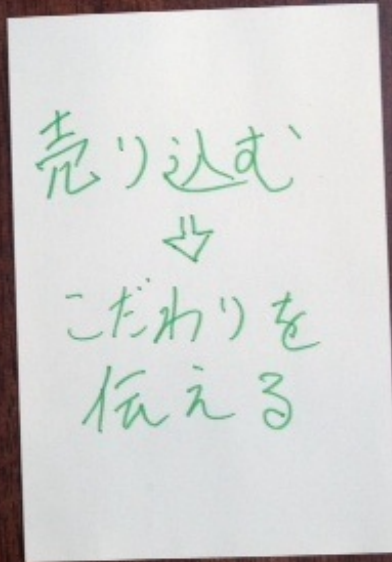 売り込む
⇩
こだわりを
伝える